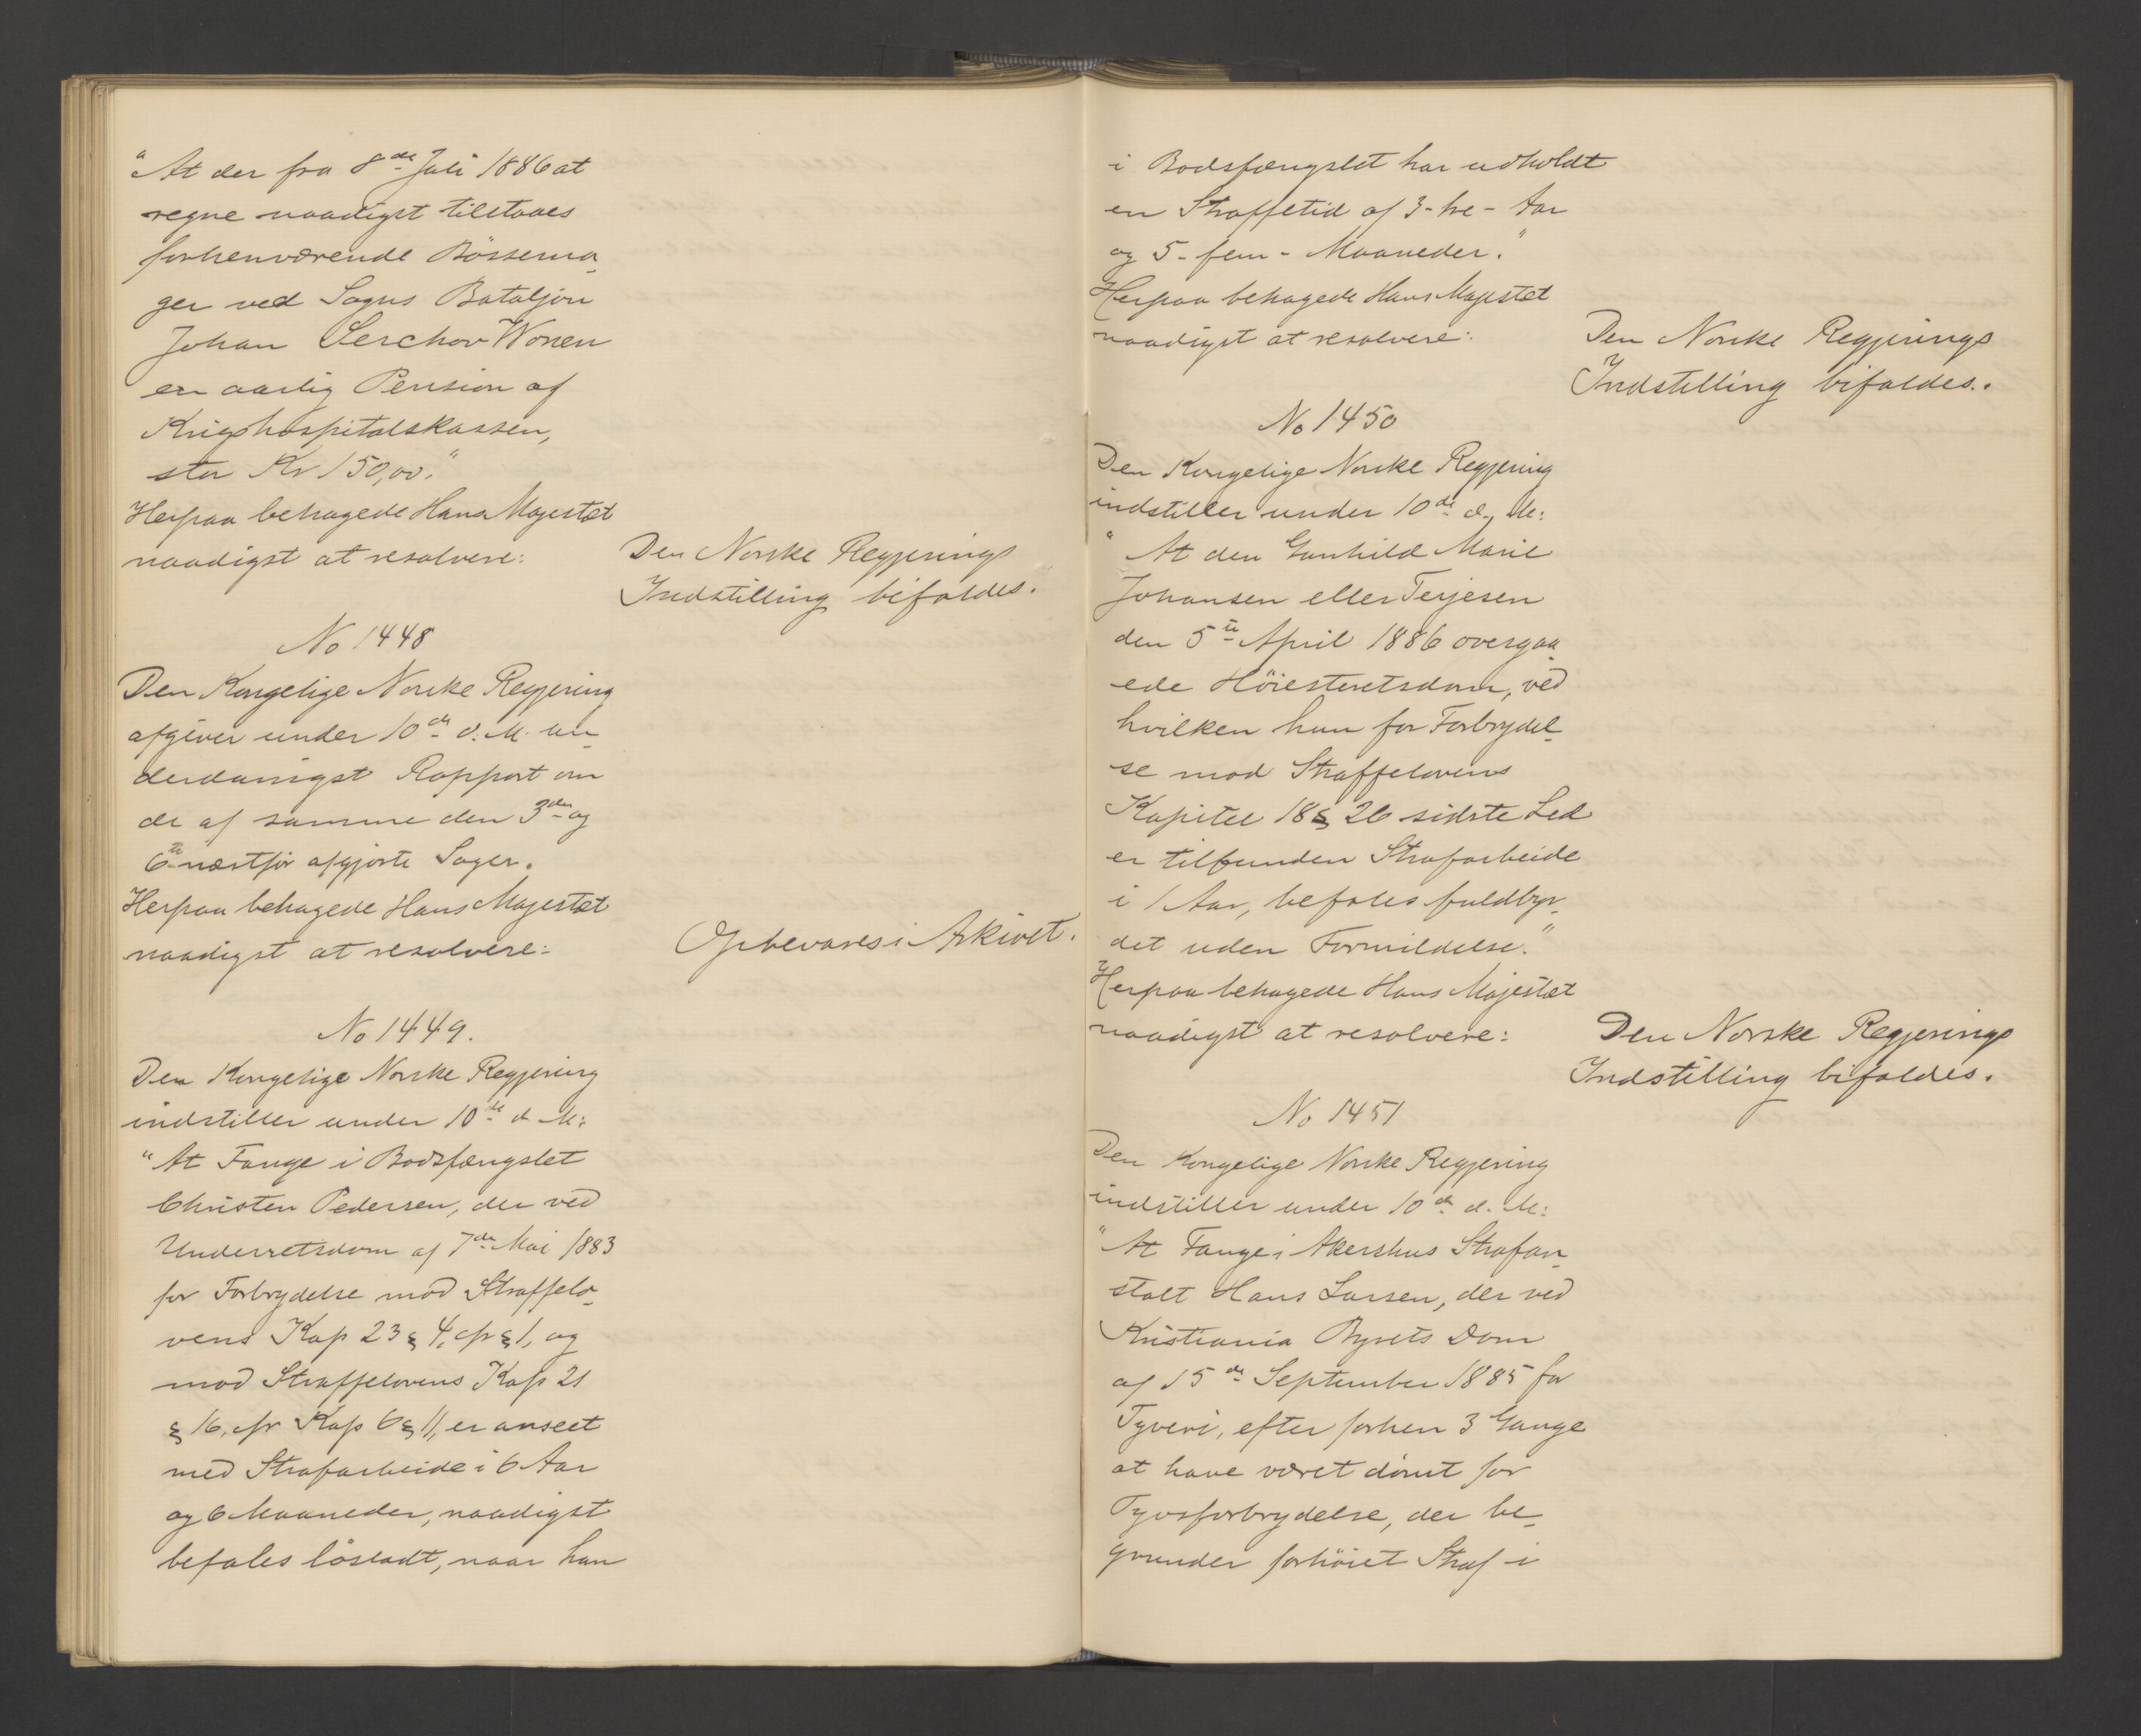 "At der fra 8de Juli 1886 at
regne naadigst tilstaaes
forhenværende Bössema-
ger ved Sogns Bataljon
Johan Lerchov Wonen
en aarlig Pension af
Krigshospitalskassen,
stor Kr 150,00."
Herpaa behagede Hans Majestæt
naadigst at resolvere:
Den Norske Regjerings
Indstilling bifaldes.
No 1448
Den Kongelige Norske Regjering
afgiver under 10de d. M. un-
derdanigst Rapport om
de af samme den 3die og
6te næstfør afgjorte Sager.
Herpaa behagede Hans Majestæt
naadigst at resolvere:
Opbevares i Arkivet.
No 1449.
Den Kongelige Norske Regjering
indstiller under 10de d. M:
"At Fange i Bodsfængslet
Christen Pedersen, der ved
Underretsdom af 7de Mai 1883
for Forbrydelse mod Straffelo-
vens Kap 23 § 4, cfr § 1, og
mod Straffelovens Kap 21
§ 16, cfr Kap 6 § 11, er anseet
med Strafarbeide i 6 Aar
og 6 Maaneder, naadigst
befales lösladt, naar han
i Bodsfængslet har udholdt
en Straffetid af 3 - tre - Aar
og 5 - fem - Maaneder."
Herpaa behagede Hans Majestæt
naadigst at resolvere:
Den Norske Regjerings
Indstilling bifaldes.
No 1450
Den Kongelige Norske Regjering
indstiller under 10de d. M:
"At den Gunhild Marie
Johansen eller Terjesen
den 5te April 1886 overgaa-
ede Höiesteretsdom, ved
hvilken hun for Forbrydel-
se mod Straffelovens
Kapitel 18 § 26 sidste Led
er tilfunden Strafarbeide
i 1 Aar, befales fuldbyr-
det uden Formildelse."
Herpaa behagede Hans Majestæt
naadigst at resolvere:
Den Norske Regjerings
Indstilling bifaldes.
No 1451
Den Kongelige Norske Regjering
indstiller under 10de d. M:
"At Fange i Akershus Strafan-
stalt Hans Larsen, der ved
Kristiania Byrets Dom
af 15de September 1885 for
Tyveri, efter forhen 3 Gange
at have været dömt for
Tyvsforbrydelse, der be-
grunder forhöiet Straf i